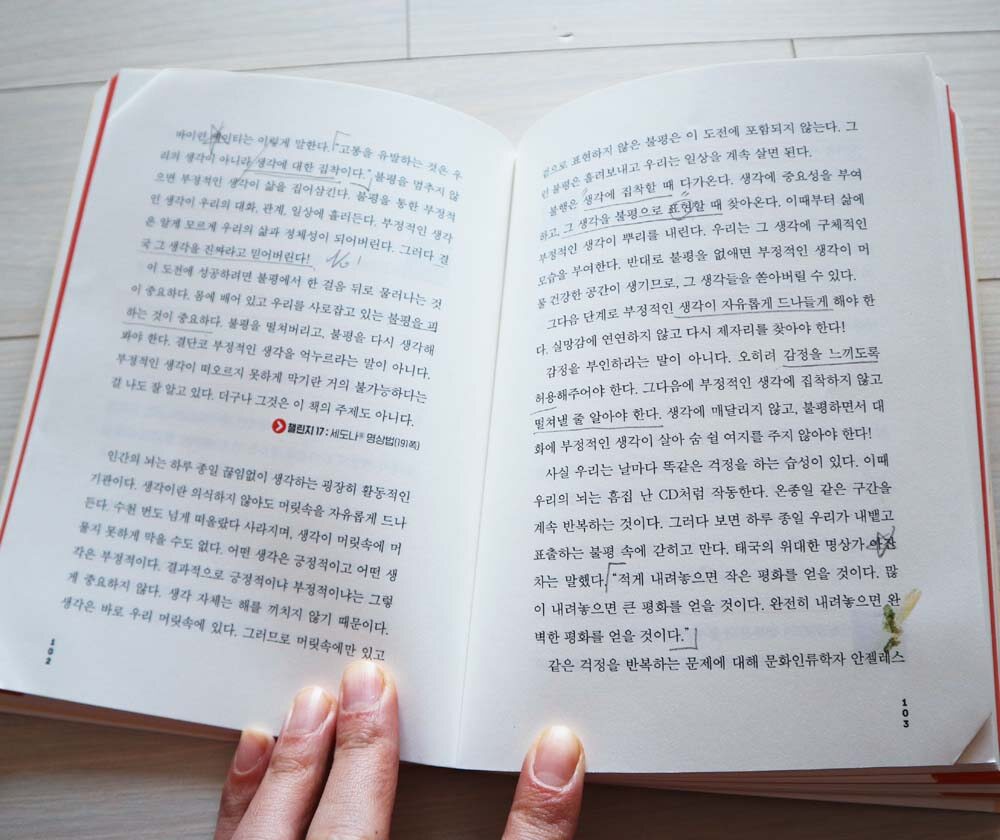 바이런 케이티는 이렇게 말한다. "고통을 유발하는 것은 우
리의 생각이 아니라 생각에 대한 집착이다." 불평을 멈추지 않
으면 부정적인 생각이 삶을 집어삼킨다. 불평을 통한 부정적
인 생각이 우리의 대화, 관계, 일상에 흘러든다. 부정적인 생각
은 알게 모르게 우리의 삶과 정체성이 되어버린다. 그러다 결
국 그 생각을 진짜라고 믿어버린다!
이 도전에 성공하려면 불평에서 한 걸음 뒤로 물러나는 것
이 중요하다. 몸에 배어 있고 우리를 사로잡고 있는 불평을 피
하는 것이 중요하다. 불평을 떨쳐버리고, 불평을 다시 생각해
봐야 한다. 결단코 부정적인 생각을 억누르라는 말이 아니다.
부정적인 생각이 떠오르지 못하게 막기란 거의 불가능하다는
걸 나도 잘 알고 있다. 더구나 그것은 이 책의 주제도 아니다.
챌린지 17: 세도나® 명상법(191쪽)
인간의 뇌는 하루 종일 끊임없이 생각하는 굉장히 활동적인
기관이다. 생각이란 의식하지 않아도 머릿속을 자유롭게 드나
든다. 수천 번도 넘게 떠올랐다 사라지며, 생각이 머릿속에 머
물지 못하게 막을 수도 없다. 어떤 생각은 긍정적이고 어떤 생
각은 부정적이다. 결과적으로 긍정적이냐 부정적이냐는 그렇
게 중요하지 않다. 생각 자체는 해를 끼치지 않기 때문이다.
생각은 바로 우리 머릿속에 있다. 그러므로 머릿속에만 있고
102
겉으로 표현하지 않은 불평은 이 도전에 포함되지 않는다. 그
런 불평은 흘려보내고 우리는 일상을 계속 살면 된다.
불행은 생각에 집착할 때 다가온다. 생각에 중요성을 부여
하고, 그 생각을 불평으로 표현할 때 찾아온다. 이때부터 삶에
부정적인 생각이 뿌리를 내린다. 우리는 그 생각에 구체적인
모습을 부여한다. 반대로 불평을 없애면 부정적인 생각이 머
물 건강한 공간이 생기므로, 그 생각들을 쫓아버릴 수 있다.
그다음 단계로 부정적인 생각이 자유롭게 드나들게 해야 한
다. 실망감에 연연하지 않고 다시 제자리를 찾아야 한다!
감정을 부인하라는 말이 아니다. 오히려 감정을 느끼도록
허용해주어야 한다. 그다음에 부정적인 생각에 집착하지 않고
떨쳐낼 줄 알아야 한다. 생각에 매달리지 않고, 불평하면서 대
화에 부정적인 생각이 살아 숨 쉴 여지를 주지 않아야 한다!
사실 우리는 날마다 똑같은 걱정을 하는 습성이 있다. 이때
우리의 뇌는 흠집 난 CD처럼 작동한다. 온종일 같은 구간을
계속 반복하는 것이다. 그러다 보면 하루 종일 우리가 내뱉고
표출하는 불평 속에 갇히고 만다. 태국의 위대한 명상가 아잔
차는 말했다. "적게 내려놓으면 작은 평화를 얻을 것이다. 많
이 내려놓으면 큰 평화를 얻을 것이다. 완전히 내려놓으면 완
벽한 평화를 얻을 것이다."
같은 걱정을 반복하는 문제에 대해 문화인류학자 안젤레스
103